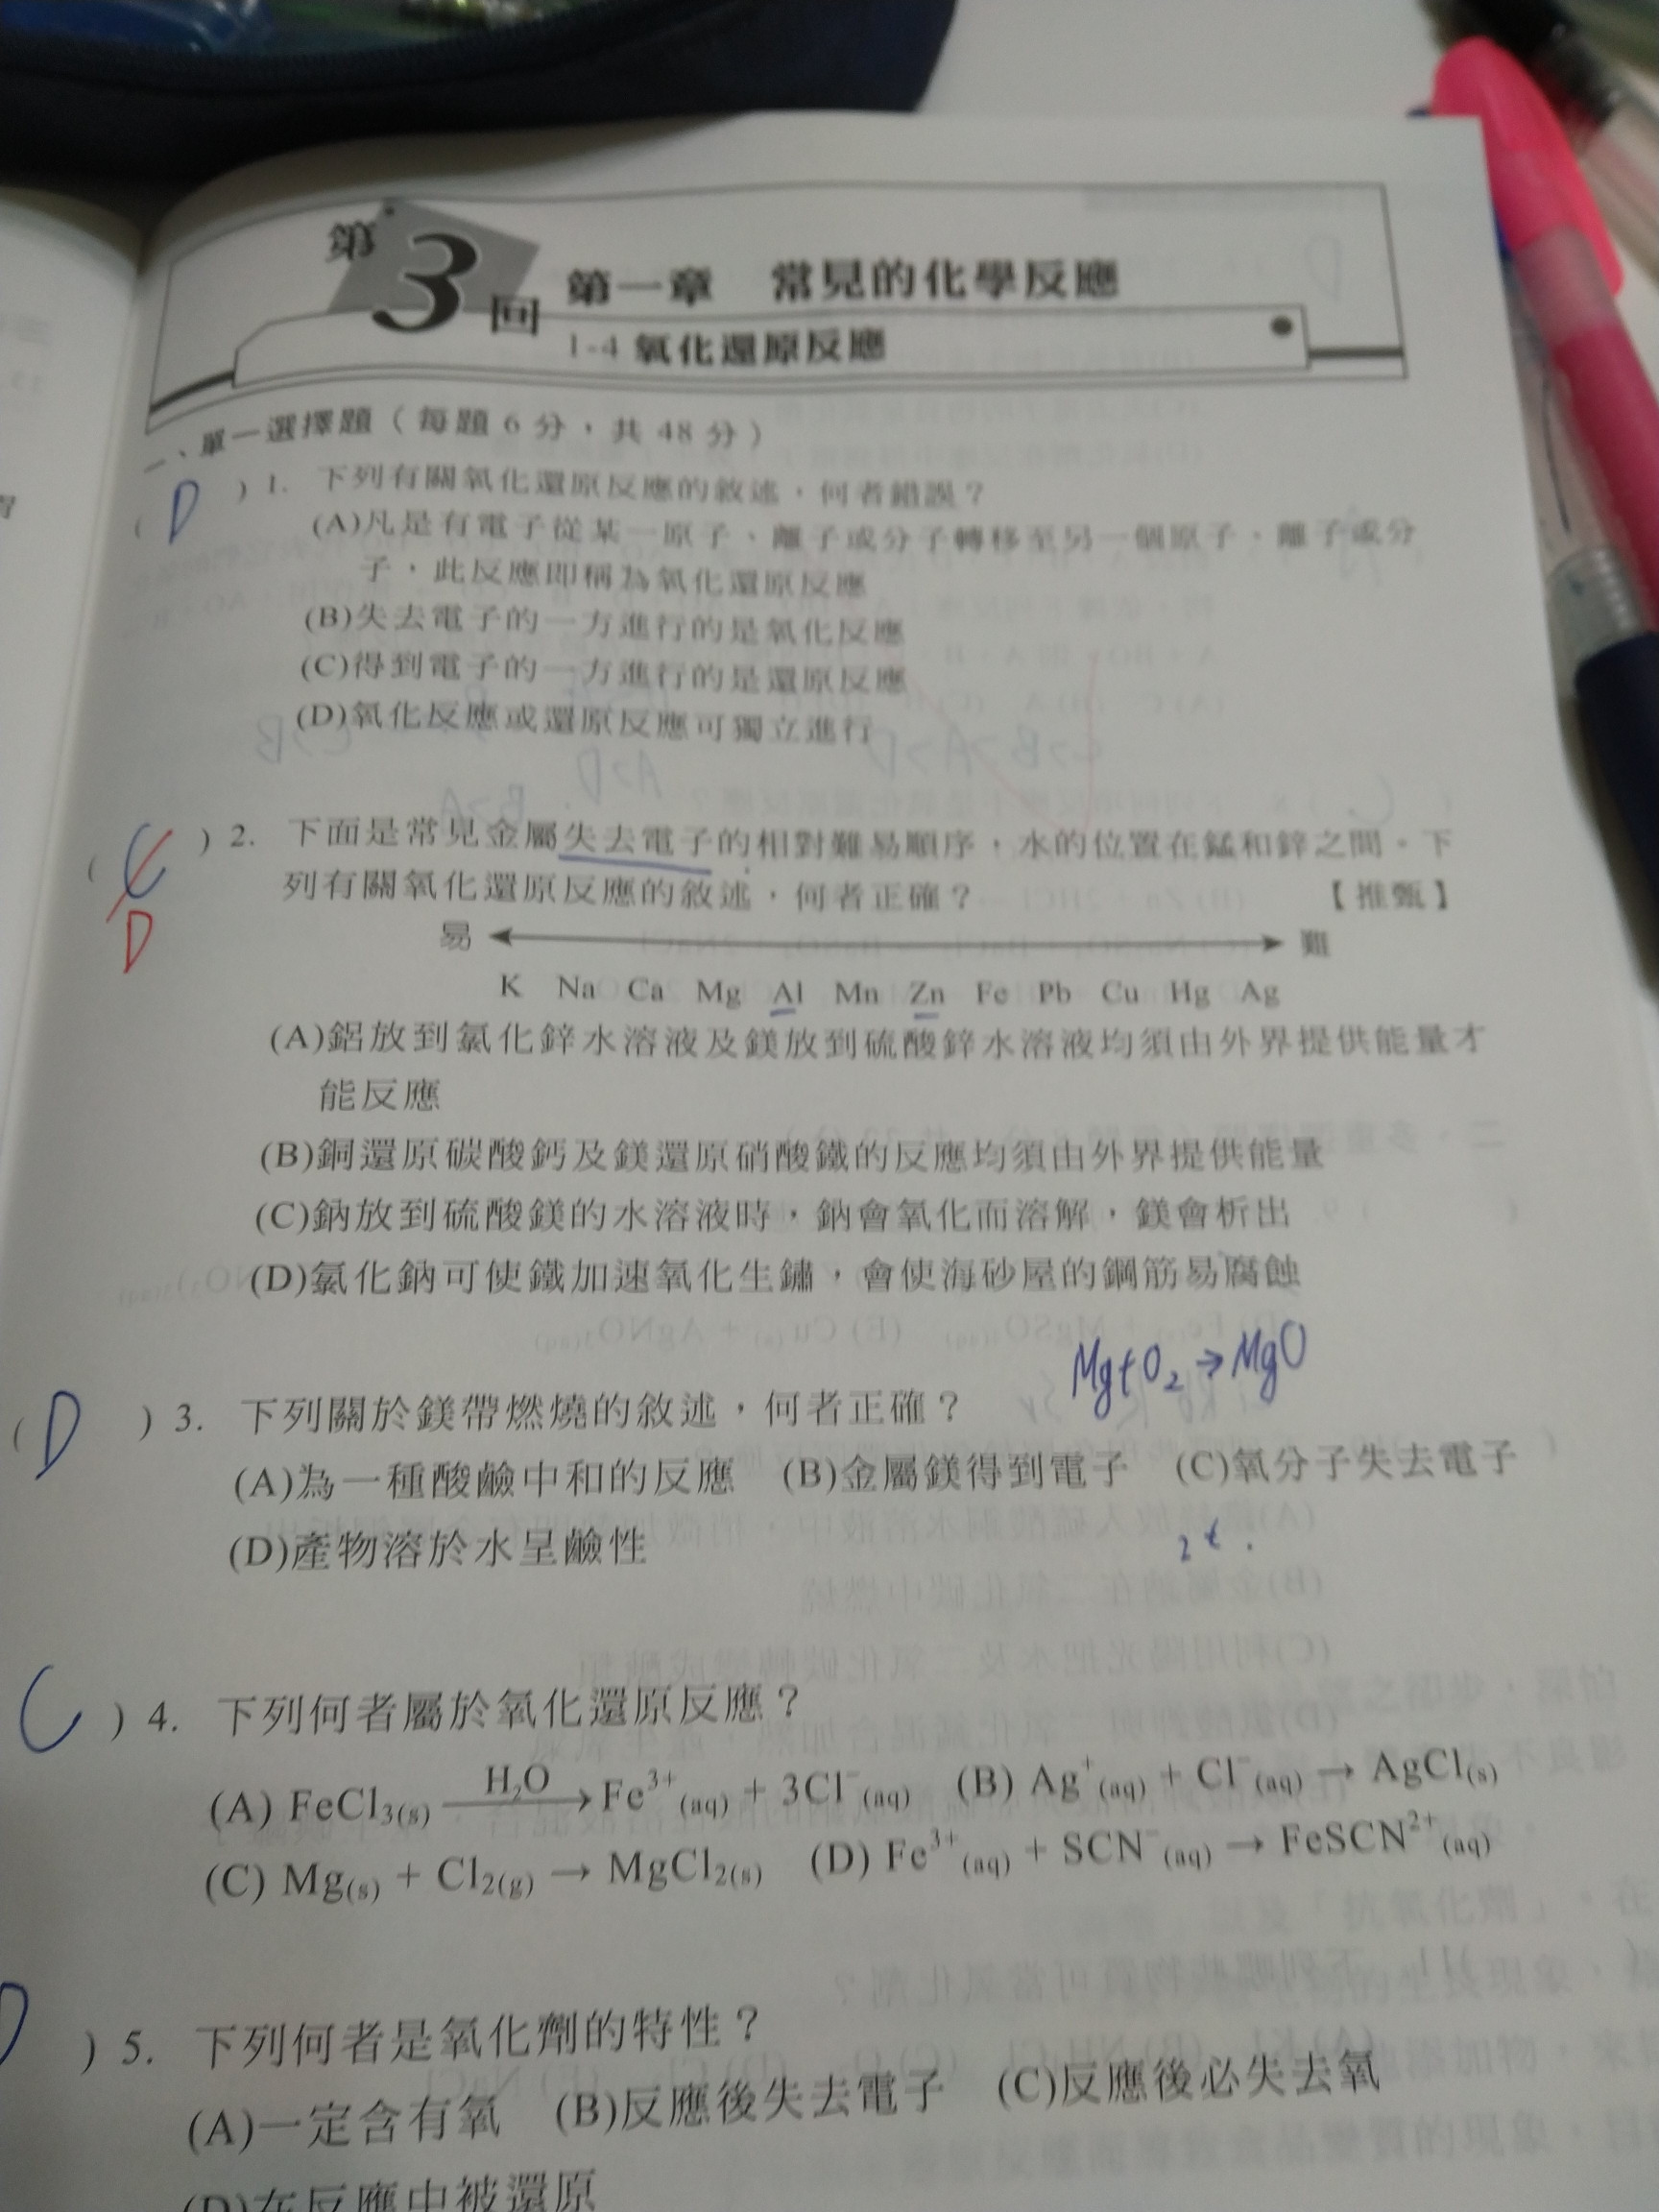 第3回 第一章 常見的化學反應
1-4 氧化還原反應
一、單一選擇題(每題6分,共48分)
( D ) 1. 下列有關氧化還原反應的敘述,何者錯誤?
(A)凡是有電子從某一原子、離子或分子轉移至另一個原子、離子或分
子,此反應即稱為氧化還原反應
(B)失去電子的一方進行的是氧化反應
(C)得到電子的一方進行的是還原反應
(D)氧化反應或還原反應可獨立進行
( C ) 2. 下面是常見金屬失去電子的相對難易順序,水的位置在錳和鋅之間。下
D
列有關氧化還原反應的敘述,何者正確? 【推甄】
易 難
K Na Ca Mg Al Mn Zn Fe Pb Cu Hg Ag
(A)鋁放到氯化鋅水溶液及鎂放到硫酸鋅水溶液均須由外界提供能量才
能反應
(B)銅還原碳酸鈣及鎂還原硝酸鐵的反應均須由外界提供能量
(C)鈉放到硫酸鎂的水溶液時,鈉會氧化而溶解,鎂會析出
(D)氯化鈉可使鐵加速氧化生鏽,會使海砂屋的鋼筋易腐蝕
Mg+O₂→MgO
( D ) 3. 下列關於鎂帶燃燒的敘述,何者正確?
(A)為一種酸鹼中和的反應 (B)金屬鎂得到電子 (C)氧分子失去電子
(D)產物溶於水呈鹼性
C ) 4. 下列何者屬於氧化還原反應?
(A) FeCl₃(s) —H₂O→ Fe³⁺(aq) + 3Cl⁻(aq) (B) Ag⁺(aq) + Cl⁻(aq) → AgCl(s)
(C) Mg(s) + Cl₂(g) → MgCl₂(s) (D) Fe³⁺(aq) + SCN⁻(aq) → FeSCN²⁺(aq)
D ) 5. 下列何者是氧化劑的特性?
(A)一定含有氧 (B)反應後失去電子 (C)反應後必失去氧
(D)在反應中被還原